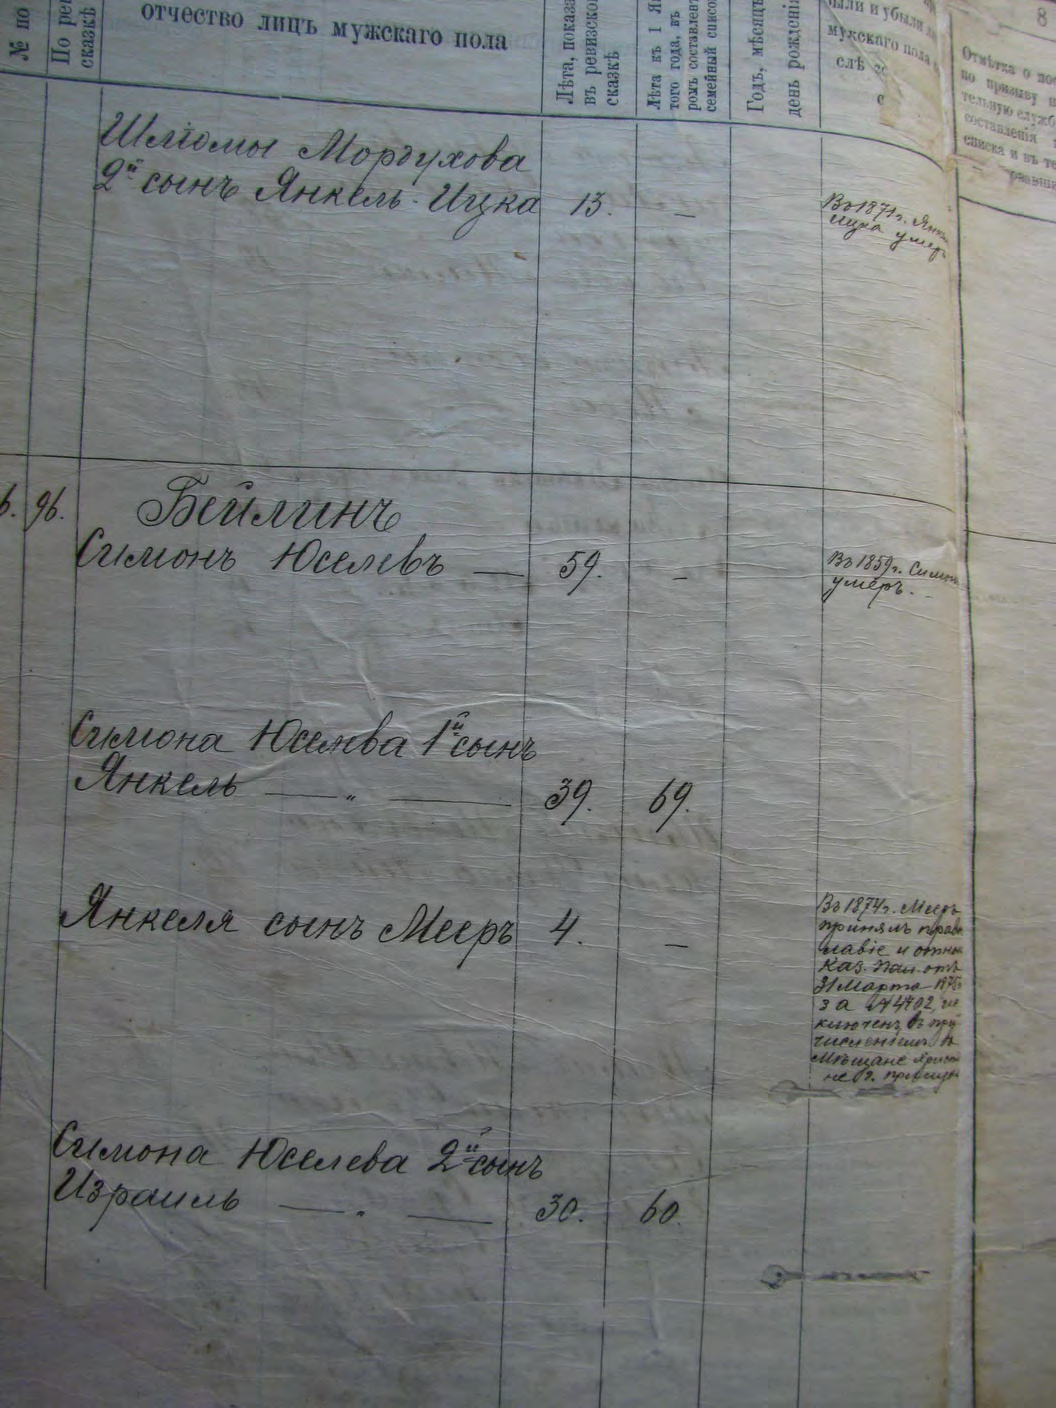 № по
По рев
сказкѣ
отчество лицъ мужскаго пола
Лѣта, показа
въ ревизской
сказкѣ
Лѣта къ 1 Ян
того года, въ
ромъ составлен
семейный списо
Годъ, мѣсяцъ
день рожденія
были и убыли ли
мужскаго пола
слѣ
Отмѣтка о по
по призыву
тельную служб
составленія
списка и въ те
8
Шліомы Мордухова
2й сынъ Янкель-Ицка 13. —
Въ 1871 г. Янкел
Ицка умер
6. 96. Бейлинъ
Симонъ Юселевъ — 59. —
Въ 1859 г. Симон
умеръ.
Симона Юселева 1й сынъ
Янкель — „ — 39. 69.
Янкеля сынъ Мееръ 4. —
Въ 1874 г. Мееръ
принялъ право
славіе и отнош
Каз. Пал. отъ
31 Марта 1875
за № 4702 ис
ключенъ въ при
численіемъ въ
Мѣщане
Симона Юселева 2й сынъ
Израиль — „ — 30. 60.
2